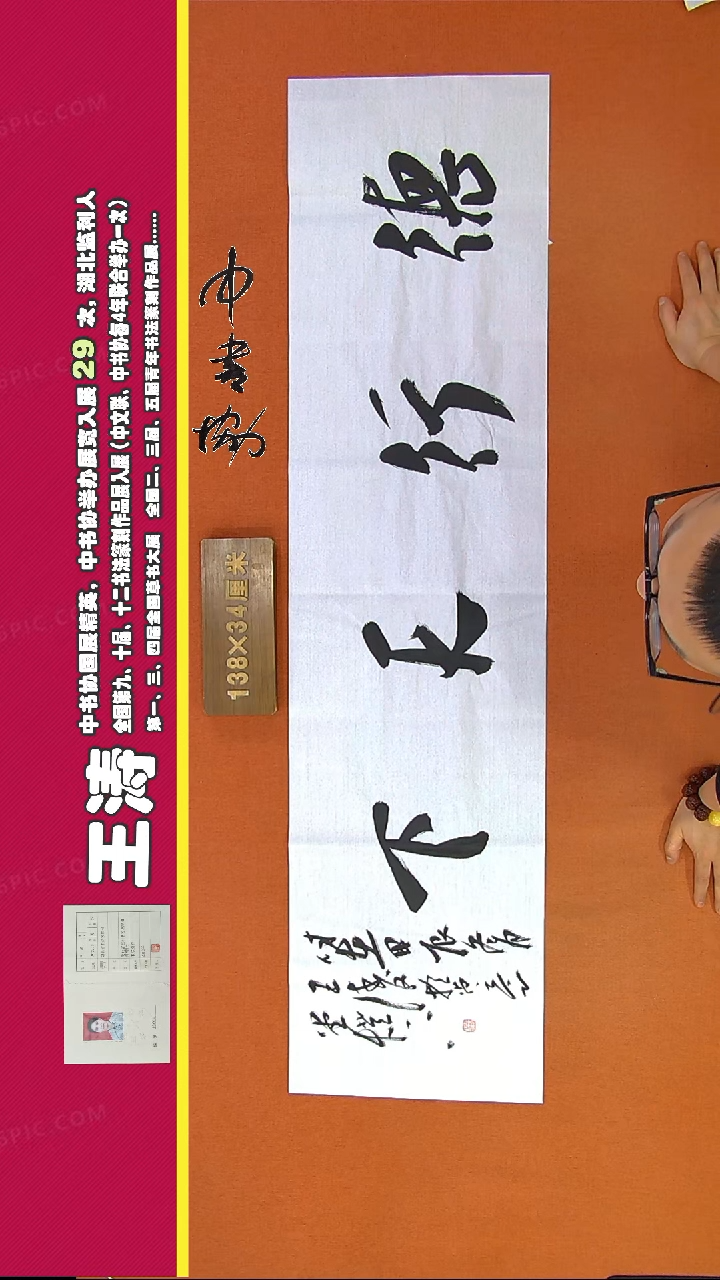 王涛
中书协国展精英，中书协举办展览入展 29 次，湖北监利人
全国第九、十届、十二书法篆刻作品展入展（中文联、中书协每4年联合举办一次）
第一、三、四届全国草书大展 全国二、三届、五届青年书法篆刻作品展......
中书协
138×34厘米
德行天下